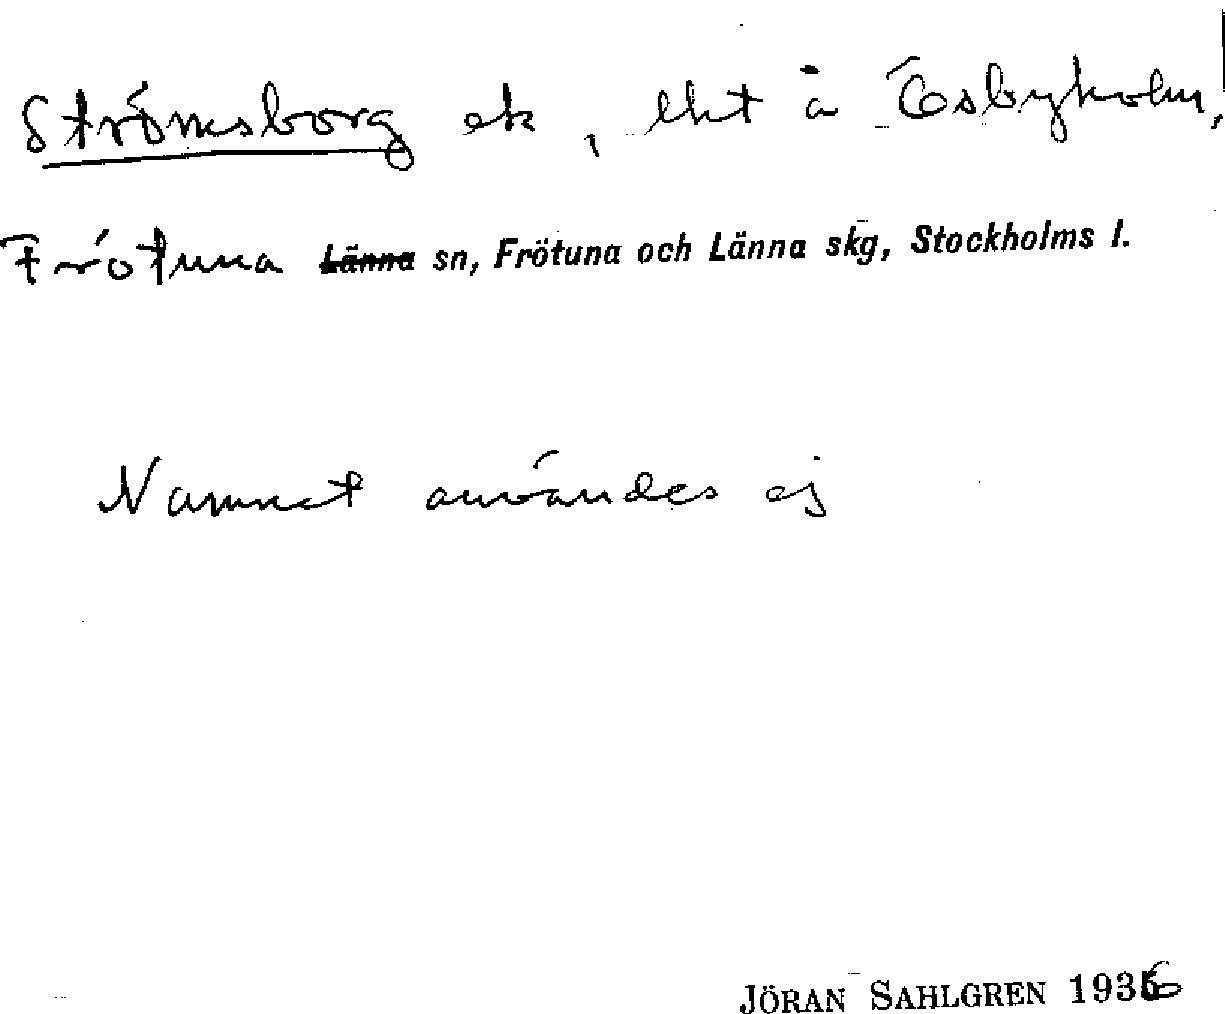 Strömsborg ek, lht å Ösbyholm,
Frötuna Länna sn, Frötuna och Länna skg, Stockholms l.
Namnet användes ej
JÖRAN SAHLGREN 1936